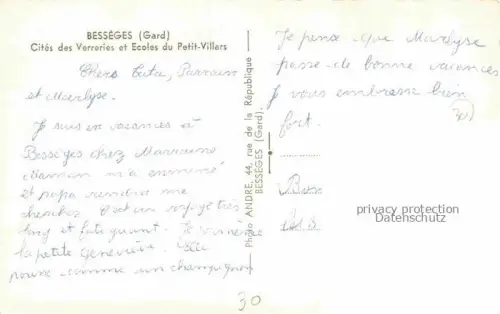 BESSÈGES (Gard)
Cités des Verreries et Ecoles du Petit-Villars
Chers Tata, Parrain
et Marlyse.
Je suis en vacances à
Bessèges chez Marraine
Maman m'a emmené
et papa viendra me
chercher. C'est un voyage très
long et fatiguant. Je
la petite Geneviève. Elle
pousse comme un champignon
Photo ANDRÉ, 44, rue de la République
BESSÈGES (Gard).
Je pense que Marlyse
passe de bonne vacances
Je vous embrasse bien
fort.
30
privacy protection
Datenschutz
30